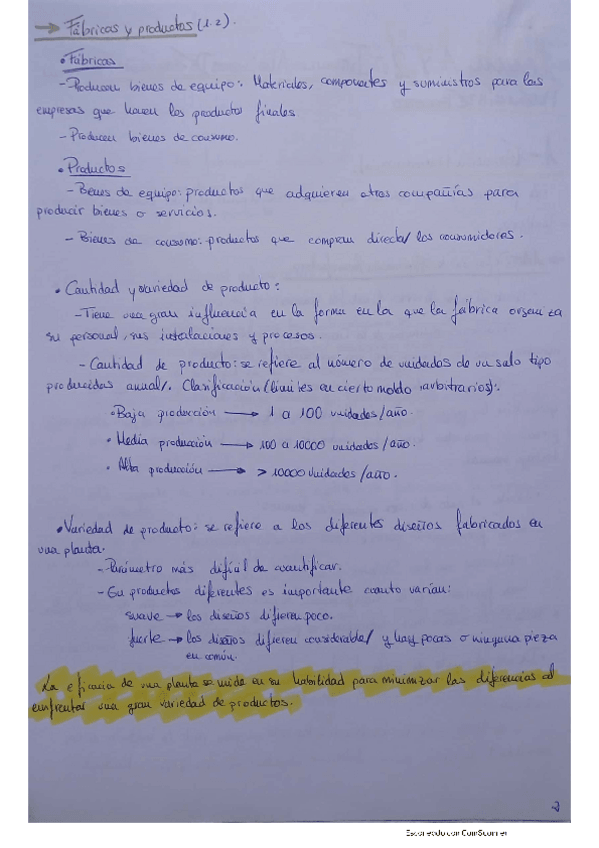 → Fábricas y productos (1.2).
• Fábricas
- Producen bienes de equipo: Materiales, componentes y suministros para las
empresas que hacen los productos finales
- Producen bienes de consumo.
• Productos
- Bienes de equipo: productos que adquieren otras compañías para
producir bienes o servicios.
- Bienes de consumo: productos que compran directa/ los consumidores.
• Cantidad y variedad de producto:
- Tiene una gran influencia en la forma en la que la fábrica organiza
su personal, sus instalaciones y procesos.
- Cantidad de producto: se refiere al número de unidades de un solo tipo
producidas anual/. Clasificación (límites en cierto moldo arbitrarios):
• Baja producción → 1 a 100 unidades/año.
• Media producción → 100 a 10000 unidades/año.
• Alta producción → > 10000 unidades/año.
• Variedad de producto: se refiere a los diferentes diseños fabricados en
una planta.
- Parámetro más difícil de cuantificar.
- En productos diferentes es importante cuanto varían:
suave → los diseños difieren poco.
fuerte → los diseños difieren considerable/ y hay pocas o ninguna pieza
en común.
La eficacia de una planta se mide en su habilidad para minimizar las diferencias al
enfrentar una gran variedad de productos.
2
Escaneado con CamScanner